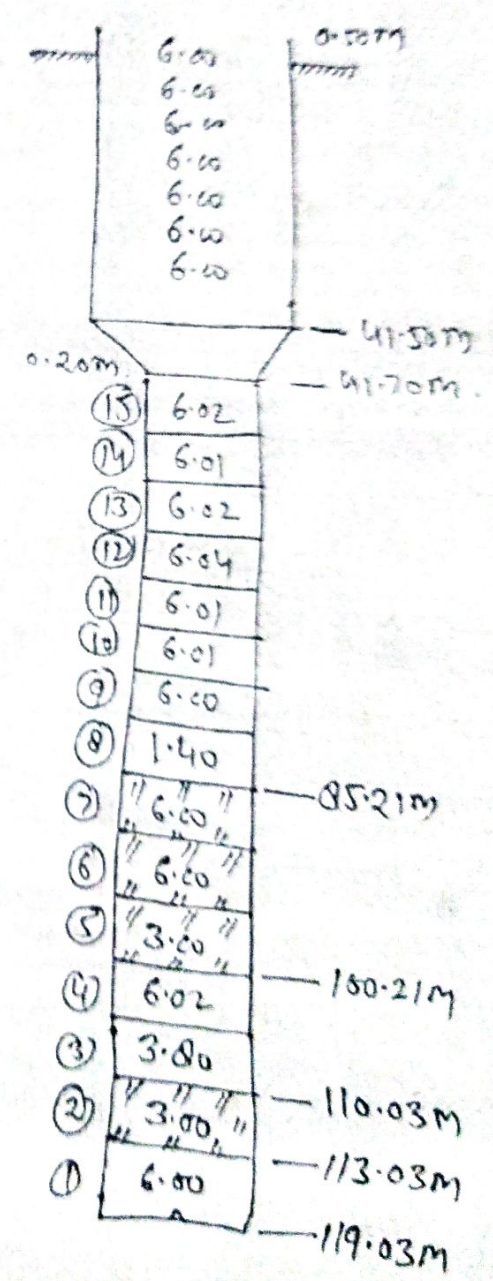 0.50m
6.00
6.00
6.00
6.00
6.00
6.00
6.00
41.50m
0.20m
41.70m.
15 6.02
14 6.01
13 6.02
12 6.04
11 6.01
10 6.01
9 6.00
8 1.40
85.21m
7 6.00
6 6.00
5 3.00
100.21m
4 6.02
3 3.80
110.03m
2 3.00
113.03m
1 6.00
119.03m